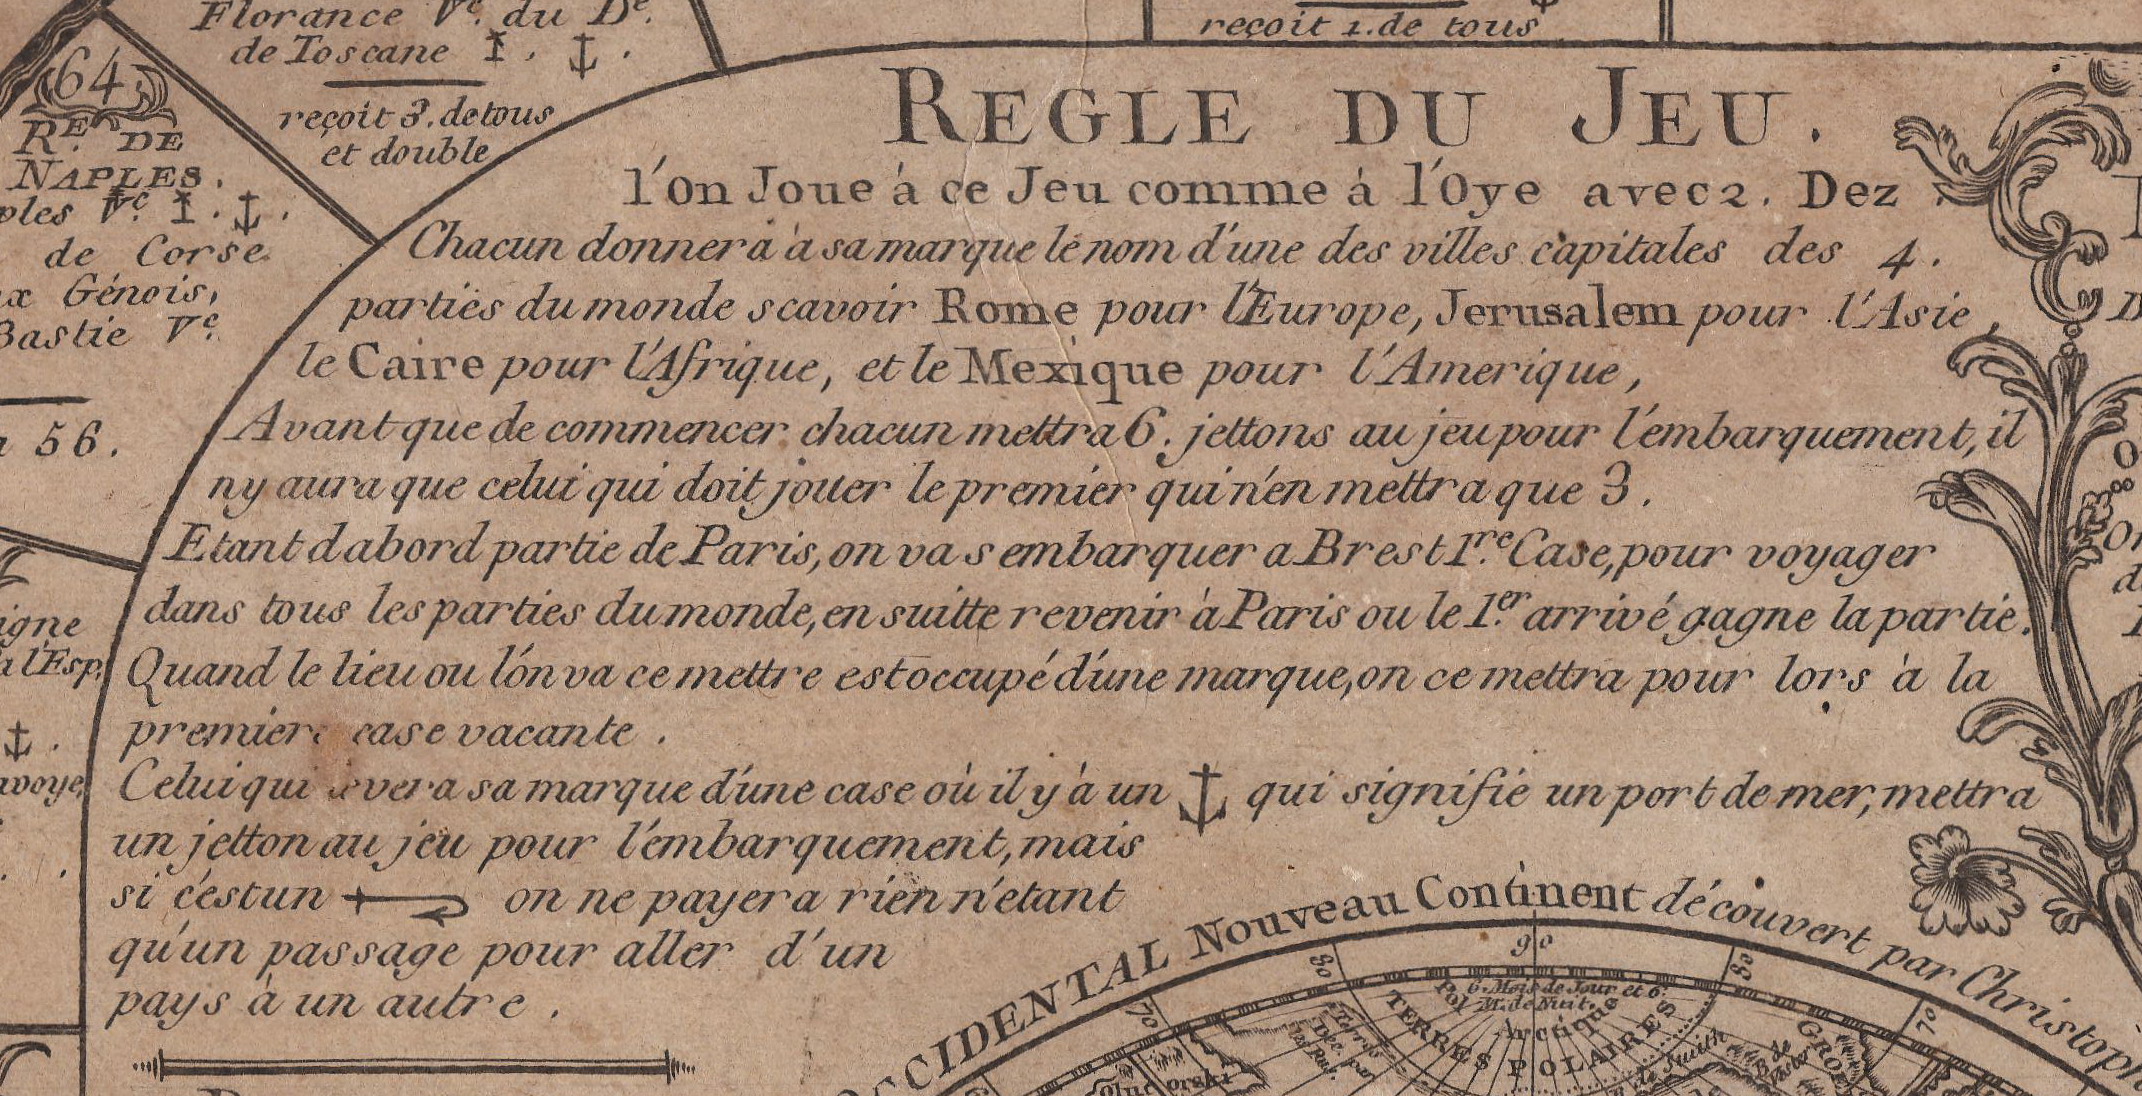 Florance Vᵉ. du Dᵉ.
de Toscane
reçoit 3. de tous
et double
64
Rᴱ. DE
NAPLES.
Vᵉ.
de Corse
Génois,
Bastie Vᵉ.
56.
reçoit 1. de tous
REGLE DU JEU.
l'On Joue à ce Jeu comme à l'Oye avec 2. Dez
Chacun donnera à sa marque le nom d'une des villes capitales des 4.
parties du monde scavoir Rome pour l'Europe, Jerusalem pour l'Asie,
le Caire pour l'Afrique, et le Mexique pour l'Amerique,
Avant que de commencer chacun mettra 6. jettons au jeu pour l'embarquement, il
ny aura que celui qui doit jouer le premier qui n'en mettra que 3.
Etant dabord partie de Paris, on va s embarquer a Brest 1.ʳᵉ Case, pour voyager
dans tous les parties du monde, en suitte revenir à Paris ou le 1.ᵉʳ arrivé gagne la partie.
Quand le lieu ou l'on va ce mettre est occupé d'une marque, on ce mettra pour lors à la
premiere case vacante.
Celui qui sa marque d'une case où il y à un ⚓ qui signifie un port de mer, mettra
un jetton au jeu pour l'embarquement, mais
si c'est un on ne payera rien n'etant
qu'un passage pour aller d'un
pays à un autre.
OCCIDENTAL Nouveau Continent découvert par Christoph
70 80 90 80 70
6. Mois de Jour et 6.
M. de Nuit.
Arctique
TERRES POLAIRES